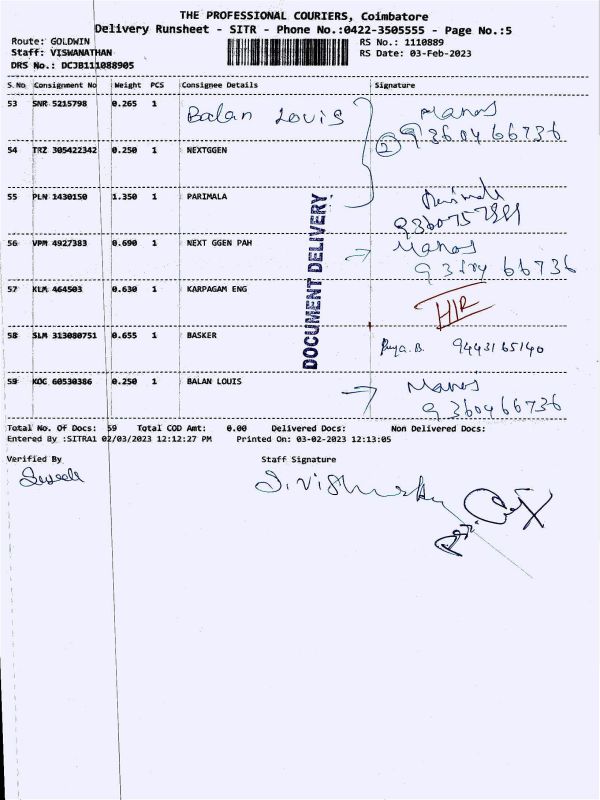 THE PROFESSIONAL COURIERS, Coimbatore
Delivery Runsheet - SITR - Phone No.:0422-3505555 - Page No.:5
Route: GOLDWIN RS No.: 1110889
Staff: VISWANATHAN RS Date: 03-Feb-2023
DRS No.: DCJB111088905
S.No Consignment No Weight PCS Consignee Details Signature
53 SNR 5215798 0.265 1 Balan Louis Manos
2 9360466736
54 TRZ 305422342 0.250 1 NEXTGGEN
55 PLN 1430150 1.350 1 PARIMALA
DOCUMENT DELIVERY
56 VPM 4927383 0.690 1 NEXT GGEN PAH Manos
66736
57 KLM 464503 0.630 1 KARPAGAM ENG
58 SLM 313080751 0.655 1 BASKER 9443165140
59 KOC 60530386 0.250 1 BALAN LOUIS Manos
9360466736
Total No. Of Docs: 59 Total COD Amt: 0.00 Delivered Docs: Non Delivered Docs:
Entered By :SITRA1 02/03/2023 12:12:27 PM Printed On: 03-02-2023 12:13:05
Verified By Staff Signature